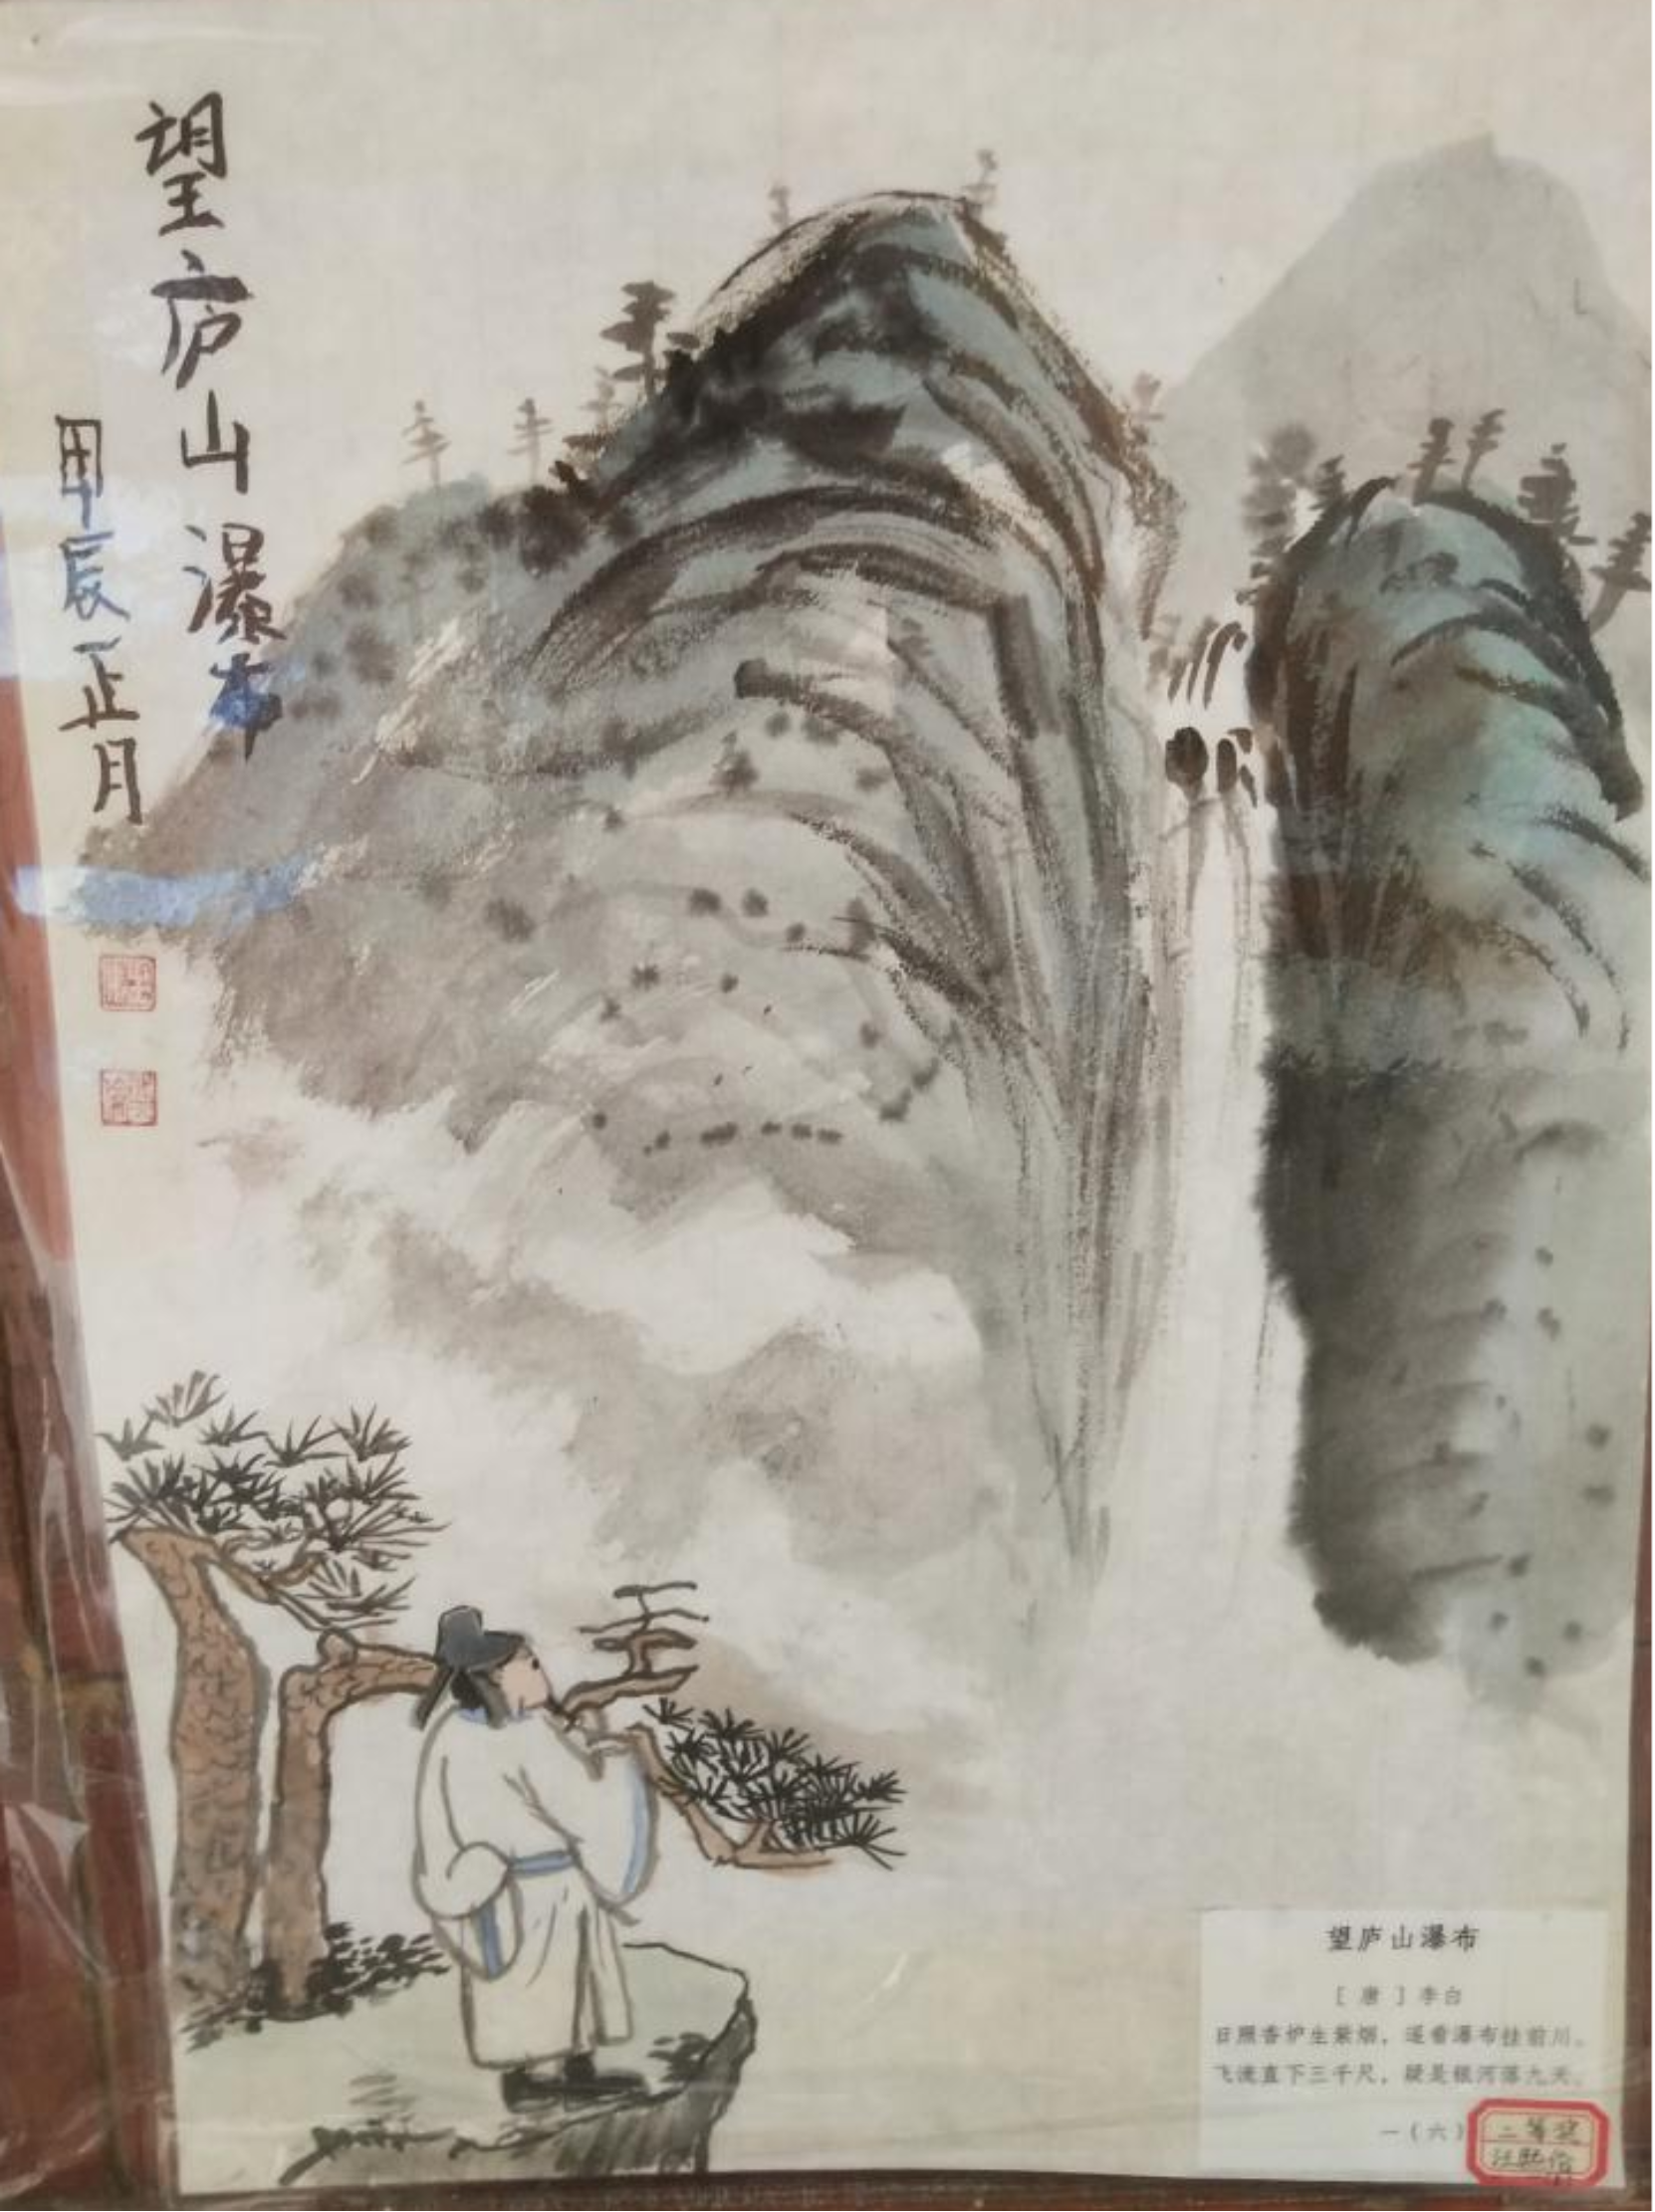 望庐山瀑布
甲辰正月
望庐山瀑布
[ 唐 ] 李白
日照香炉生紫烟，遥看瀑布挂前川。
飞流直下三千尺，疑是银河落九天。
一（六）
二等奖